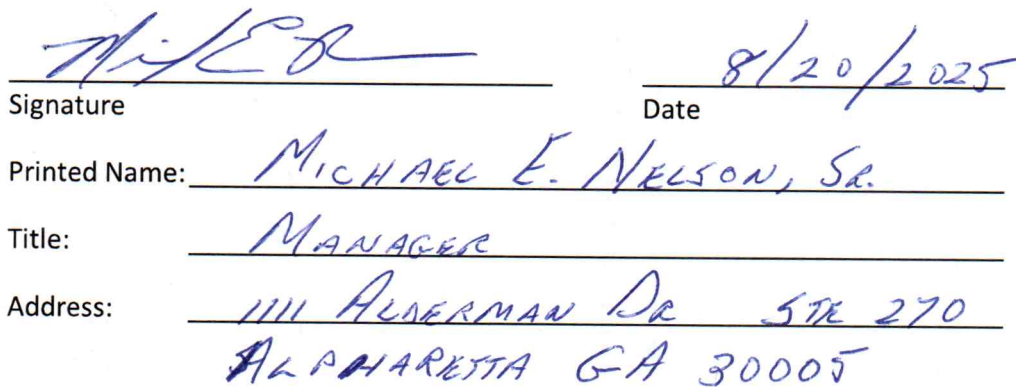 8/20/2025
Signature Date
Printed Name: MICHAEL E. NELSON, SR.
Title: MANAGER
Address: 1111 ALDERMAN DR STE 270
ALPHARETTA GA 30005